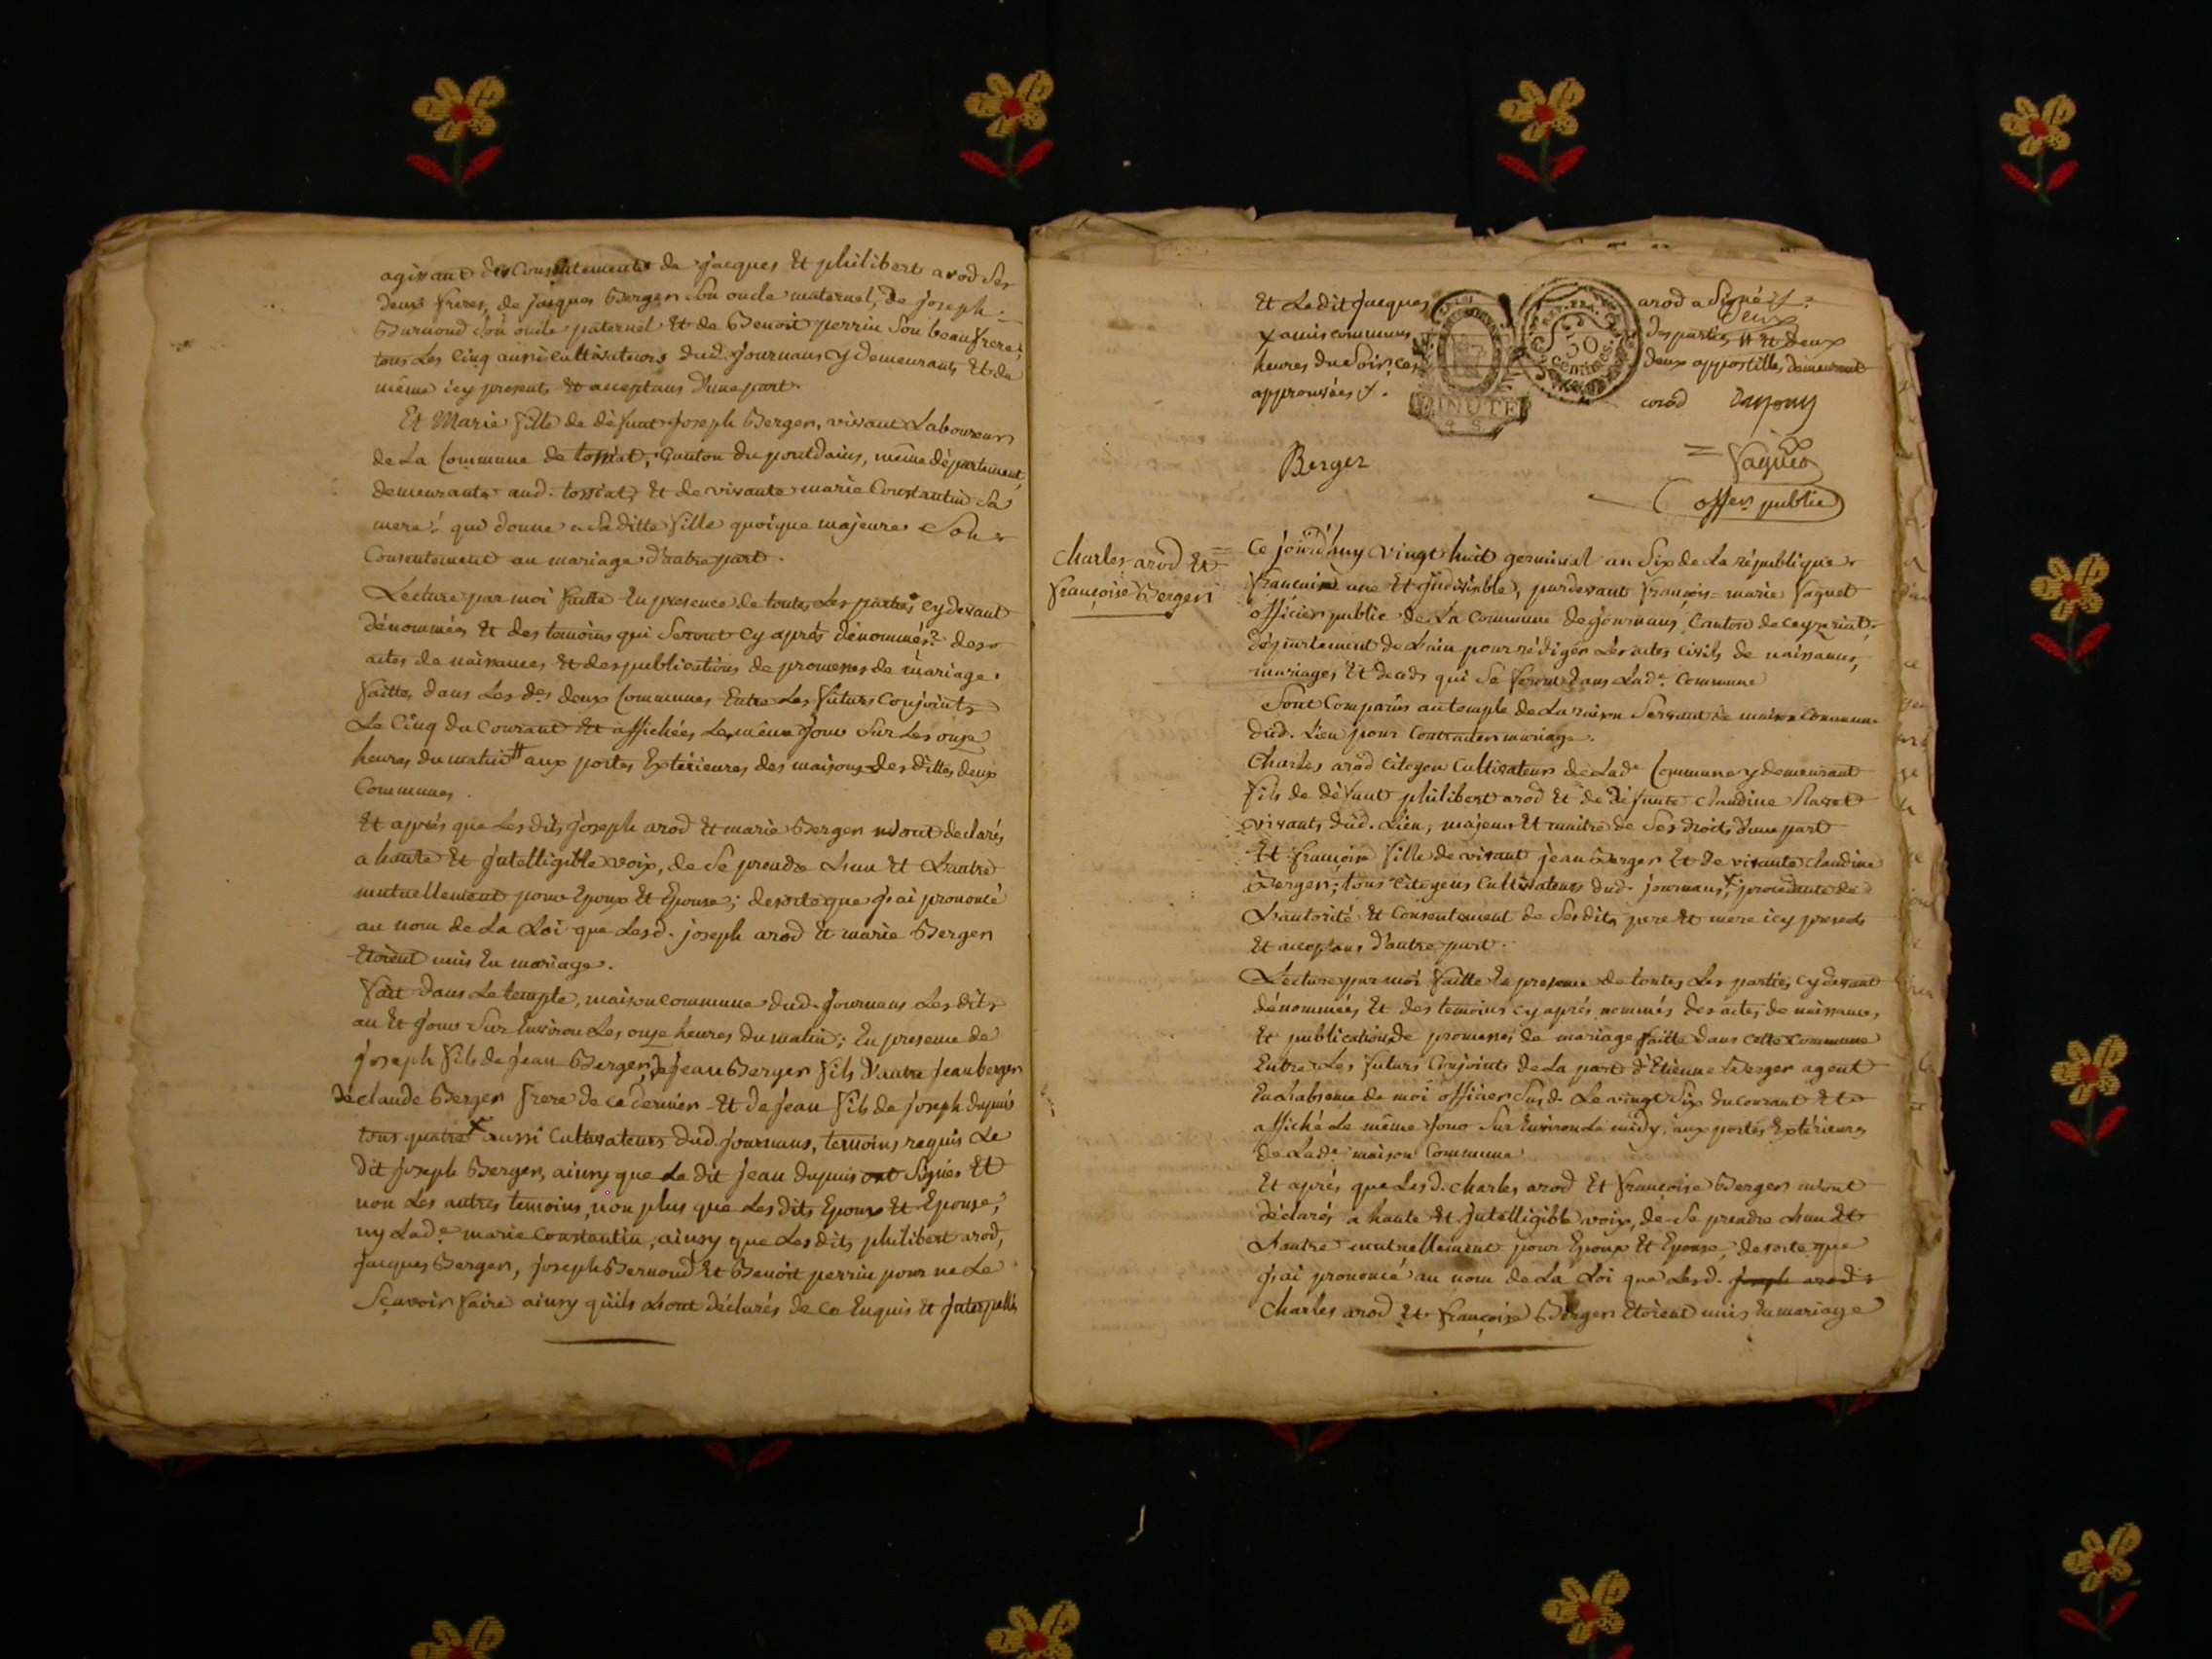 agissant des consentements de jacques Et philibert arod Ses
deux freres, de jacques Berger Son oncle maternel, de joseph
Burnoud Son oncle paternel Et de Benoit perrin Son beaufrere,
tous Les Cinq aussi cultivateurs dud. journans y demeurants Et de
même icy presents Et acceptans d'une part.
Et Marie fille de défunt joseph Berger, vivant Laboureur
de La Commune de tossiat, Canton du pontdains, même département,
demeurante aud. tossiat, Et de vivante marie Constantin Sa
mere, qui donne a Sa ditte fille quoique majeure Son
Consentement au mariage d'autre part.
Lecture par moi faitte En presence de toutes Les parties cy devant
dénommées Et des temoins qui Seront cy après dénommés, des
actes de naissances Et des publications de promesses de mariage
faittes dans Les des deux Communes Entre Les futurs Conjoints
Le Cinq du Courant Et affichées Le même jour Sur Les onze
heures du matin # aux portes Extérieures des maisons des dittes deux
Communes.
Et après que Les dits joseph arod Et marie Berger m'ont declarés
a haute Et jntelligible voix, de Se prendre L'un Et L'autre
mutuellement pour Epoux Et Epouse; desorte que j'ai prononcé
au nom de La Loi que Lesd. joseph arod Et marie Berger
Etoient unis En mariage.
fait dans Le temple, maison commune dud. journans Les dits
an Et jour Sur Environ Les onze heures du matin; En presence de
joseph fils de jean Berger, de jean Berger fils d'autre jean berger
de claude Berger frere de ce dernier Et de jean fils de joseph dupuis
tous quatre x aussi Cultivateurs dud. journans, temoins requis Le
dit joseph Berger, ainsy que Le dit jean dupuis ont Signés Et
non Les autres temoins, non plus que Les dits Epoux Et Epouse,
ny Lade marie Constantin, ainsy que Les dits philibert arod,
jacques Berger, joseph Bernoud Et Benoit perrin pour ne Le
Sçavoir faire ainsy qu'ils L'ont déclarés de ce Enquis Et jnterpellés
Et Ledit jacques arod a Signé
x amis communs deux des parties # Et deux
heures du Soir, ces deux appostilles demeurant
approuvées
MINUTE
50 centimes
arod
Berger
faguet
offer public
Charles arod Et
françoise Berger
Ce jourd'huy vingt huit germinal an Six de La république
française une Et jndivisible, pardevant françois-marie faguet
officier public de La Commune de journans, Canton de ceyzeriat,
département de L'ain pour rédiger Les actes civils de naissances,
mariages Et decès qui Se feront dans Lade Commune
Sont Comparus au temple de La raison Servant de maison Commune
dud. Lieu pour Contracter mariage.
Charles arod Citoyen Cultivateur de Lade Commune y demeurant
fils de défunt philibert arod Et de défunte claudine
vivants dud. Lieu, majeur Et maitre de Ses droits d'une part
Et françoise fille de vivant jean Berger Et de vivante claudine
Berger; tous Citoyens Cultivateurs dud. journans, x procedante de
L'autorité Et Consentement de Ses dits pere Et mere icy presents
Et acceptans d'autre part.
Lecture par moi faitte En presence de toutes Les parties cy devant
dénommées Et des temoins cy après nommés des actes de naissances,
Et publications de promesses de mariage faitte dans cette Commune
Entre Les futurs Conjoints de La part d'Etienne Berger agent
En L'absence de moi officier Susd. Le vingt Six du courant Et
affiché Le même jour Sur Environ Le midy, aux portes Extérieures
de Lade maison Commune
Et après que Lesd. charles arod Et françoise Berger m'ont
déclarés a haute Et jntelligible voix, de Se prendre L'un Et
L'autre mutuellement pour Epoux Et Epouse, desorte que
j'ai prononcé au nom de La Loi que Lesd. joseph arod
Charles arod Et françoise Berger Etoient unis En mariage